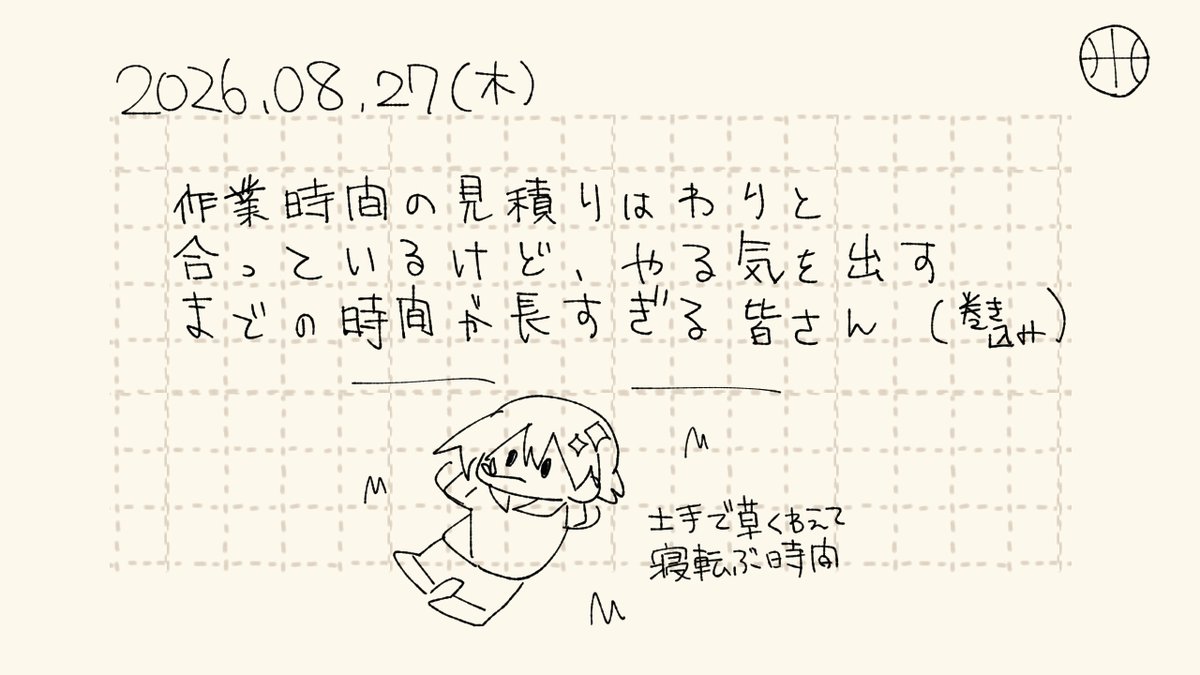 2026.08.27(木)
作業時間の見積りはわりと
合っているけど、やる気を出す
までの時間が長すぎる皆さん(巻き込み)
土手で草くわえて
寝転ぶ時間